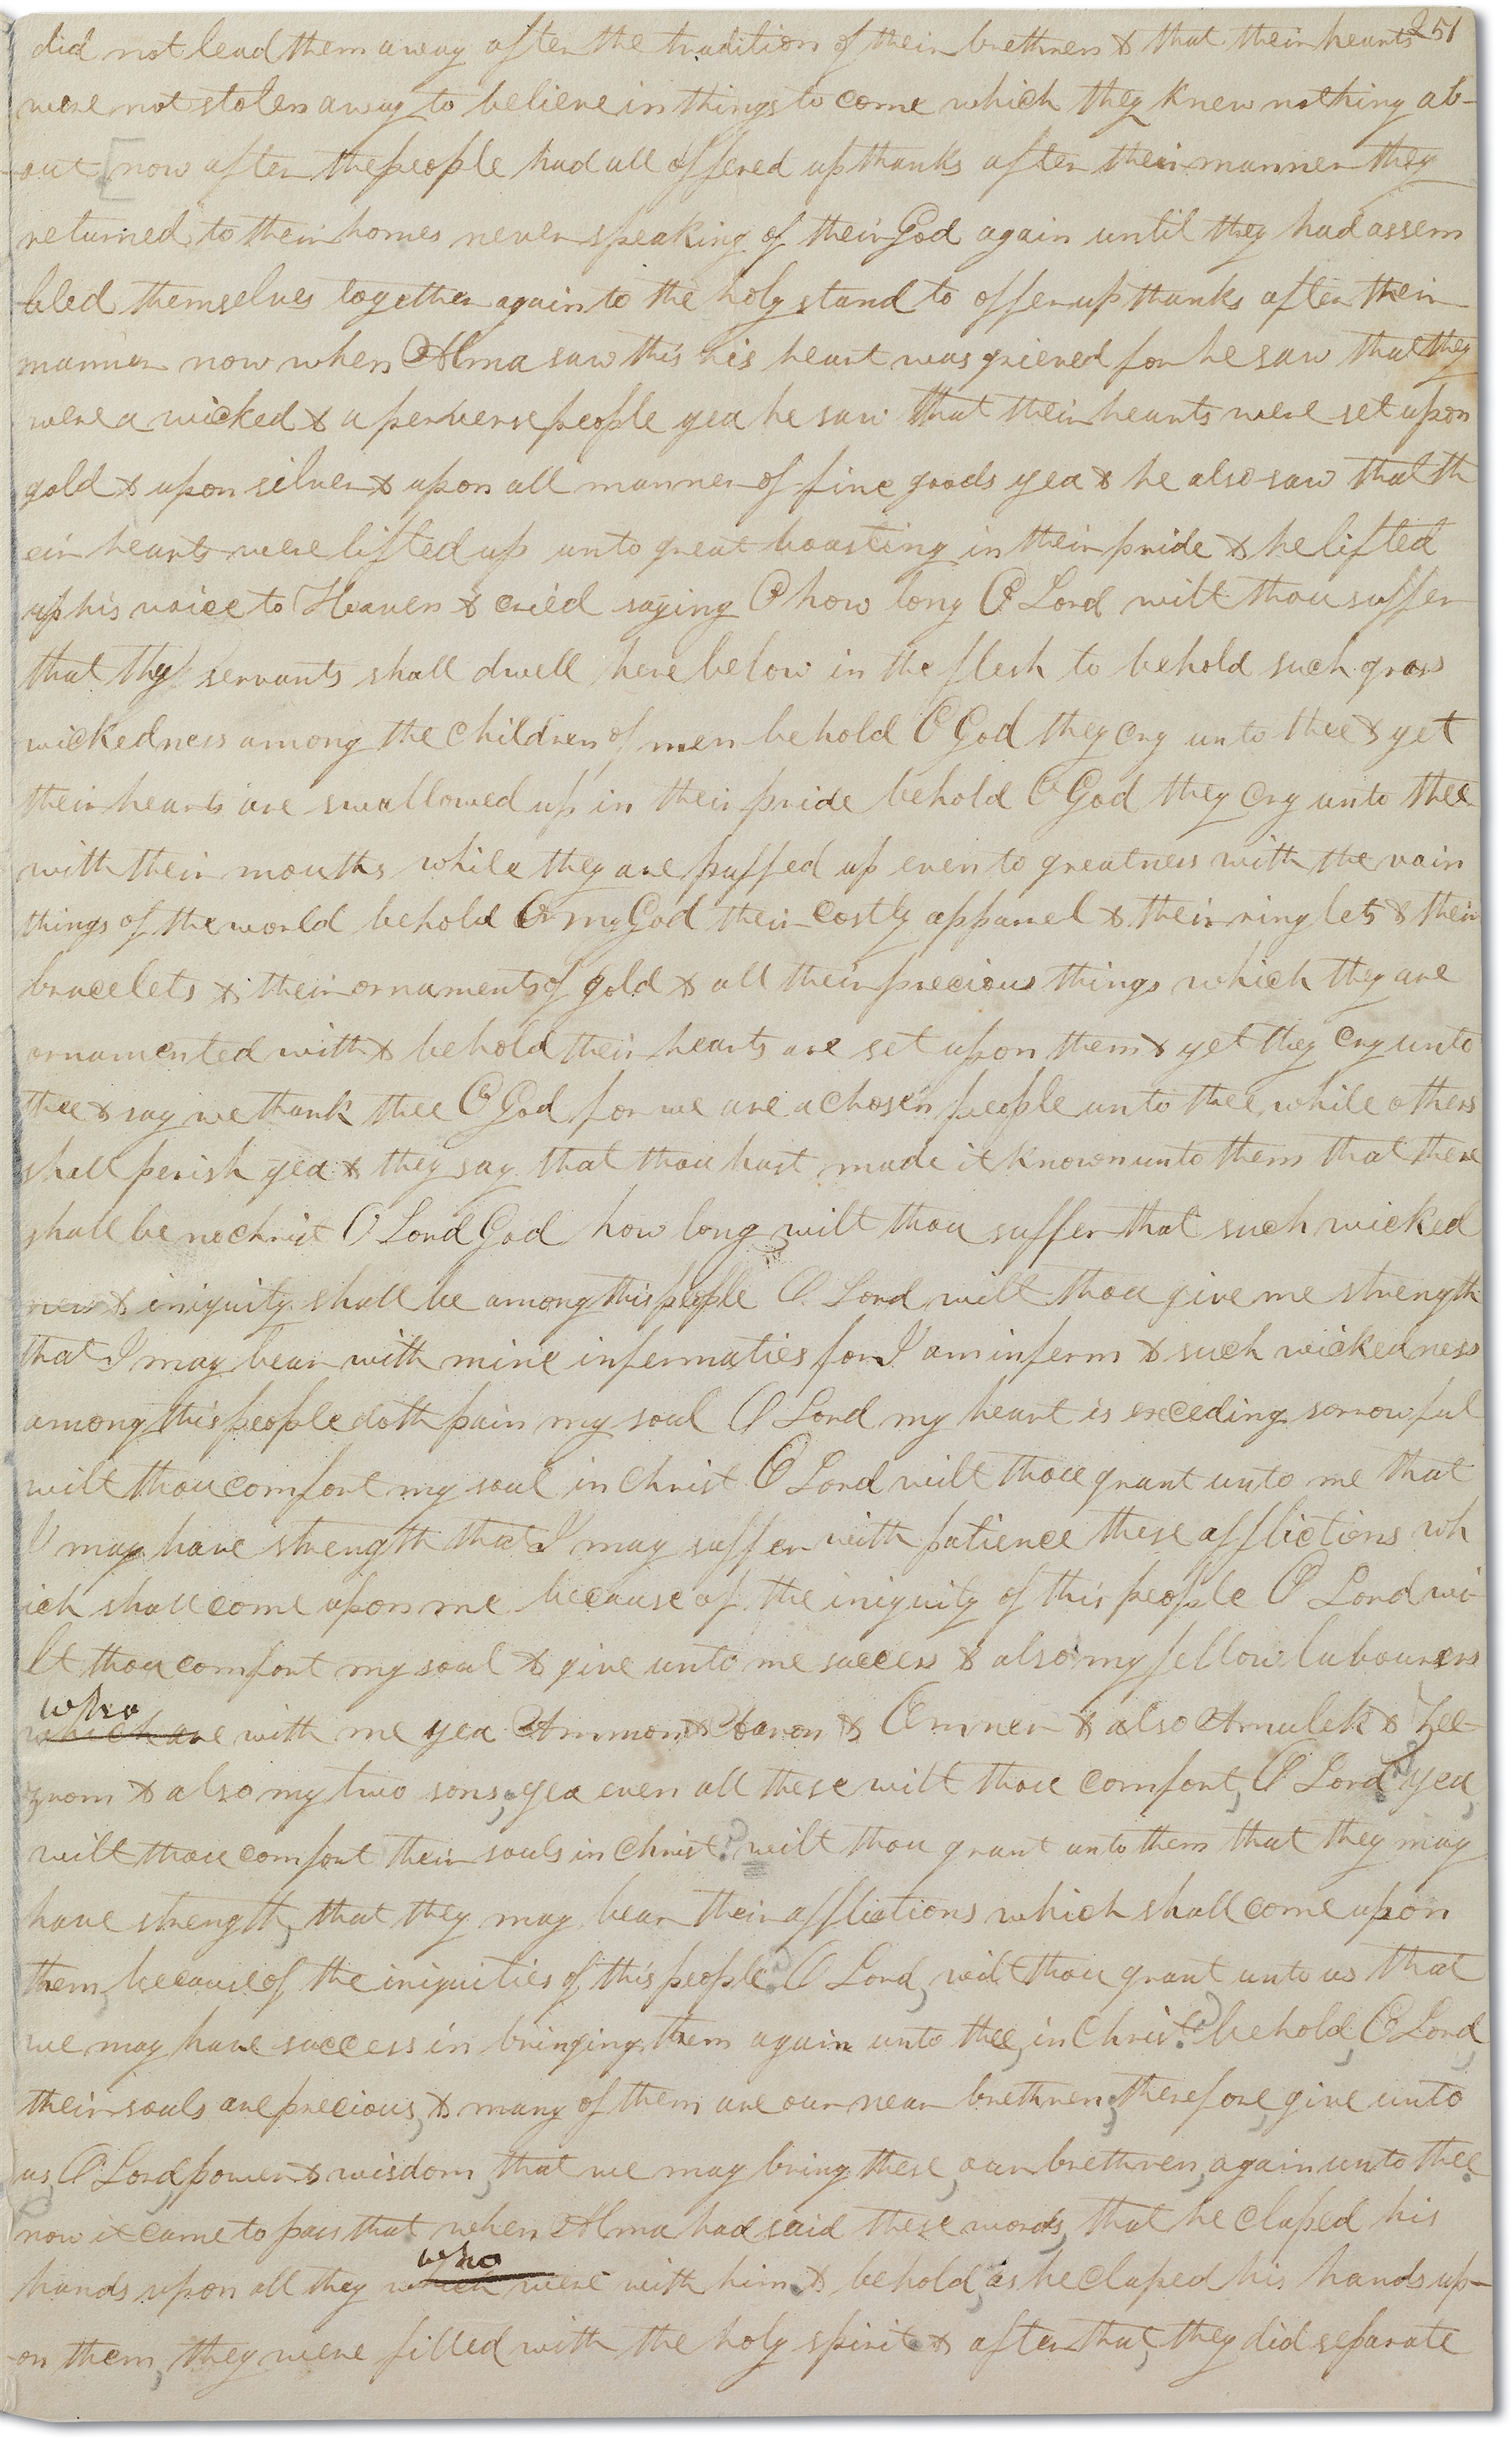 251
did not lead them away after the tradition of their brethren & that their hearts
were not stolen away to believe in things to come which they knew nothing ab-
-out [now after the people had all offered up thanks after their manner they
returned to their homes never speaking of their God again until they had assem
bled themselves together again to the holy stand to offer up thanks after their
manner now when Alma saw this his heart was grieved for he saw that they
were a wicked & a perverse people yea he saw that their hearts were set upon
gold & upon silver & upon all manner of fine goods yea & he also saw that th
eir hearts were lifted up unto great boasting in their pride & he lifted
up his voice to Heaven & cried saying O how long O Lord wilt thou suffer
that thy servants shall dwell here below in the flesh to behold such gross
wickedness among the children of men behold O God they cry unto thee & yet
their hearts are swallowed up in their pride behold O God they cry unto thee
with their mouths while they are puffed up even to greatness with the vain
things of the world behold O my God their costly apparel & their ringlets & their
bracelets & their ornaments of gold & all their precious things which they are
ornamented with & behold their hearts are set upon them & yet they cry unto
thee & say we thank thee O God for we are a chosen people unto thee while others
shall perish yea & they say that thou hast made it known unto them that there
shall be no christ O Lord God how long wilt thou suffer that such wicked
ness & iniquity shall be among this people O Lord wilt thou give me strength
that I may bear with mine infermaties for I am inferm & such wickedness
among this people doth pain my soul O Lord my heart is exceding sorrowful
wilt thou comfort my soul in christ O Lord wilt thou grant unto me that
I may have strength that I may suffer with patience these afflictions wh
ich shall come upon me because of the iniquity of this people O Lord wi-
lt thou comfort my soul & give unto me success & also my fellow labourers
who
which are with me yea Ammon & Aaron & Omner & also Amulek & Zee-
zrom & also my two sons, yea even all these wilt thou comfort, O Lord? yea,
wilt thou comfort their souls in christ? wilt thou grant unto them that they may
have strength, that they may bear their afflictions which shall come upon
them, because of the iniquities of this people? O Lord, wilt thou grant unto us that
we may have success in bringing them again unto thee, in Christ? behold, O Lord,
their souls are precious, & many of them are our near brethren; therefore, give unto
us, O Lord, power & wisdom, that we may bring these, our brethren, again unto thee.
now it came to pass that when Alma had said these words, that he claped his
who
hands upon all they which were with him. & behold, as he claped his hands up-
-on them, they were filled with the holy spirit & after that, they did separate